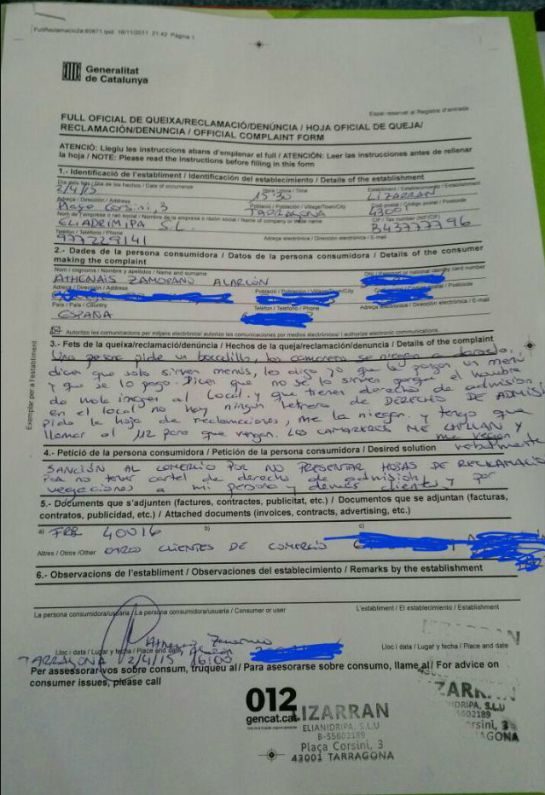 FullReclamacio2a:60671.qxd 16/11/2011 21:42 Página 1
Generalitat
de Catalunya
Espai reservat al Registre d'entrada
FULL OFICIAL DE QUEIXA/RECLAMACIÓ/DENÚNCIA / HOJA OFICIAL DE QUEJA/
RECLAMACIÓN/DENUNCIA / OFFICIAL COMPLAINT FORM
ATENCIÓ: Llegiu les instruccions abans d'emplenar el full / ATENCIÓN: Leer las instrucciones antes de rellenar
la hoja / NOTE: Please read the instructions before filling in this form
1.- Identificació de l'establiment / Identificación del establecimiento / Details of the establishment
Dia dels fets / Día de los hechos / Date of occurrence Hora / Time Establiment / Establecimiento / Establishment
2/4/15 15'30 LIZARRAN
Adreça / Dirección / Address Població / Población / Village/Town/City Codi postal / Código postal / Postcode
Plaça Corsini, 3 TARRAGONA 43001
Nom de l'empresa o raó social / Nombre de la empresa o razón social / Name of company or trade name CIF / Tax number
ELIADRIMIPA S.L. B43777796
Telèfon / Teléfono / Phone Adreça electrònica / Dirección electrónica / E-mail
977229141
2.- Dades de la persona consumidora / Datos de la persona consumidora / Details of the consumer
making the complaint
Nom i cognoms / Nombre y apellidos / Name and surname
ATHENAIS ZAMORANO ALARCÓN
Adreça / Dirección / Address Població / Población / Village/Town/City Codi postal / Código postal / Postcode
País / País / Country Telèfon / Teléfono / Phone Adreça electrònica / Dirección electrónica / E-mail
ESPAÑA
Autoritzo les comunicacions per mitjans electrònics/ autorizo las comunicaciones por medios electrónicos/ I authorize electronic communications.
3.- Fets de la queixa/reclamació/denúncia / Hechos de la queja/reclamación/denuncia / Details of the complaint
Una persona pide un bocadillo, los camareros se niegan a
dicen que solo sirven menús, les digo yo que le pongan un menú
y que se lo pago. Dicen que no se lo sirven porque el hombre
da mala imagen al local y que tienen derecho de admisión.
en el local no hay ningún letrero de DERECHO DE ADMISI
Pido la hoja de reclamaciones, me la niegan y tengo que
llamar al 112 para que vengan. LOS CAMAREROS ME CHILLAN Y
me vejan verbalmente
4.- Petició de la persona consumidora / Petición de la persona consumidora / Desired solution
SANCIÓN AL COMERCIO POR NO PRESENTAR HOJAS DE RECLAMACIÓ
por no tener cartel de derecho de admisión y por
vejaciones a mi persona y demás clientes
5.- Documents que s'adjunten (factures, contractes, publicitat, etc.) / Documentos que se adjuntan (facturas,
contratos, publicidad, etc.) / Attached documents (invoices, contracts, advertising, etc.)
a) b) c)
40016
Altres / Otros /Other OTROS CLIENTES DE COMERCIO
6.- Observacions de l'establiment / Observaciones del establecimiento / Remarks by the establishment
La persona consumidora/usuària / La persona consumidora/usuaria / Consumer or user L'establiment / El establecimiento / Establishment
Lloc i data / Lugar y fecha / Place and date Lloc i data / Lugar y fecha / Place and date
TARRAGONA 2/4/15 16:00
Per assessorar-vos sobre consum, truqueu al/ Para asesorarse sobre consumo, llame al/ For advice on
consumer issues, please call
012
gencat.cat
LIZARRAN
ELIANDRIPA, S.L.U
B-55602189
Plaça Corsini, 3
43001 TARRAGONA
Exemplar per a l'establiment